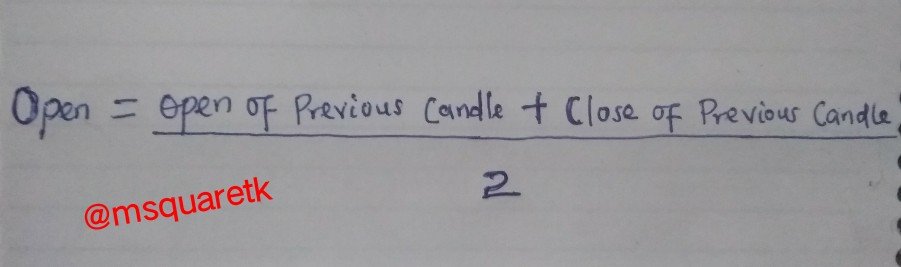 Open = Open of Previous Candle + Close of Previous Candle
2
@msquaretk